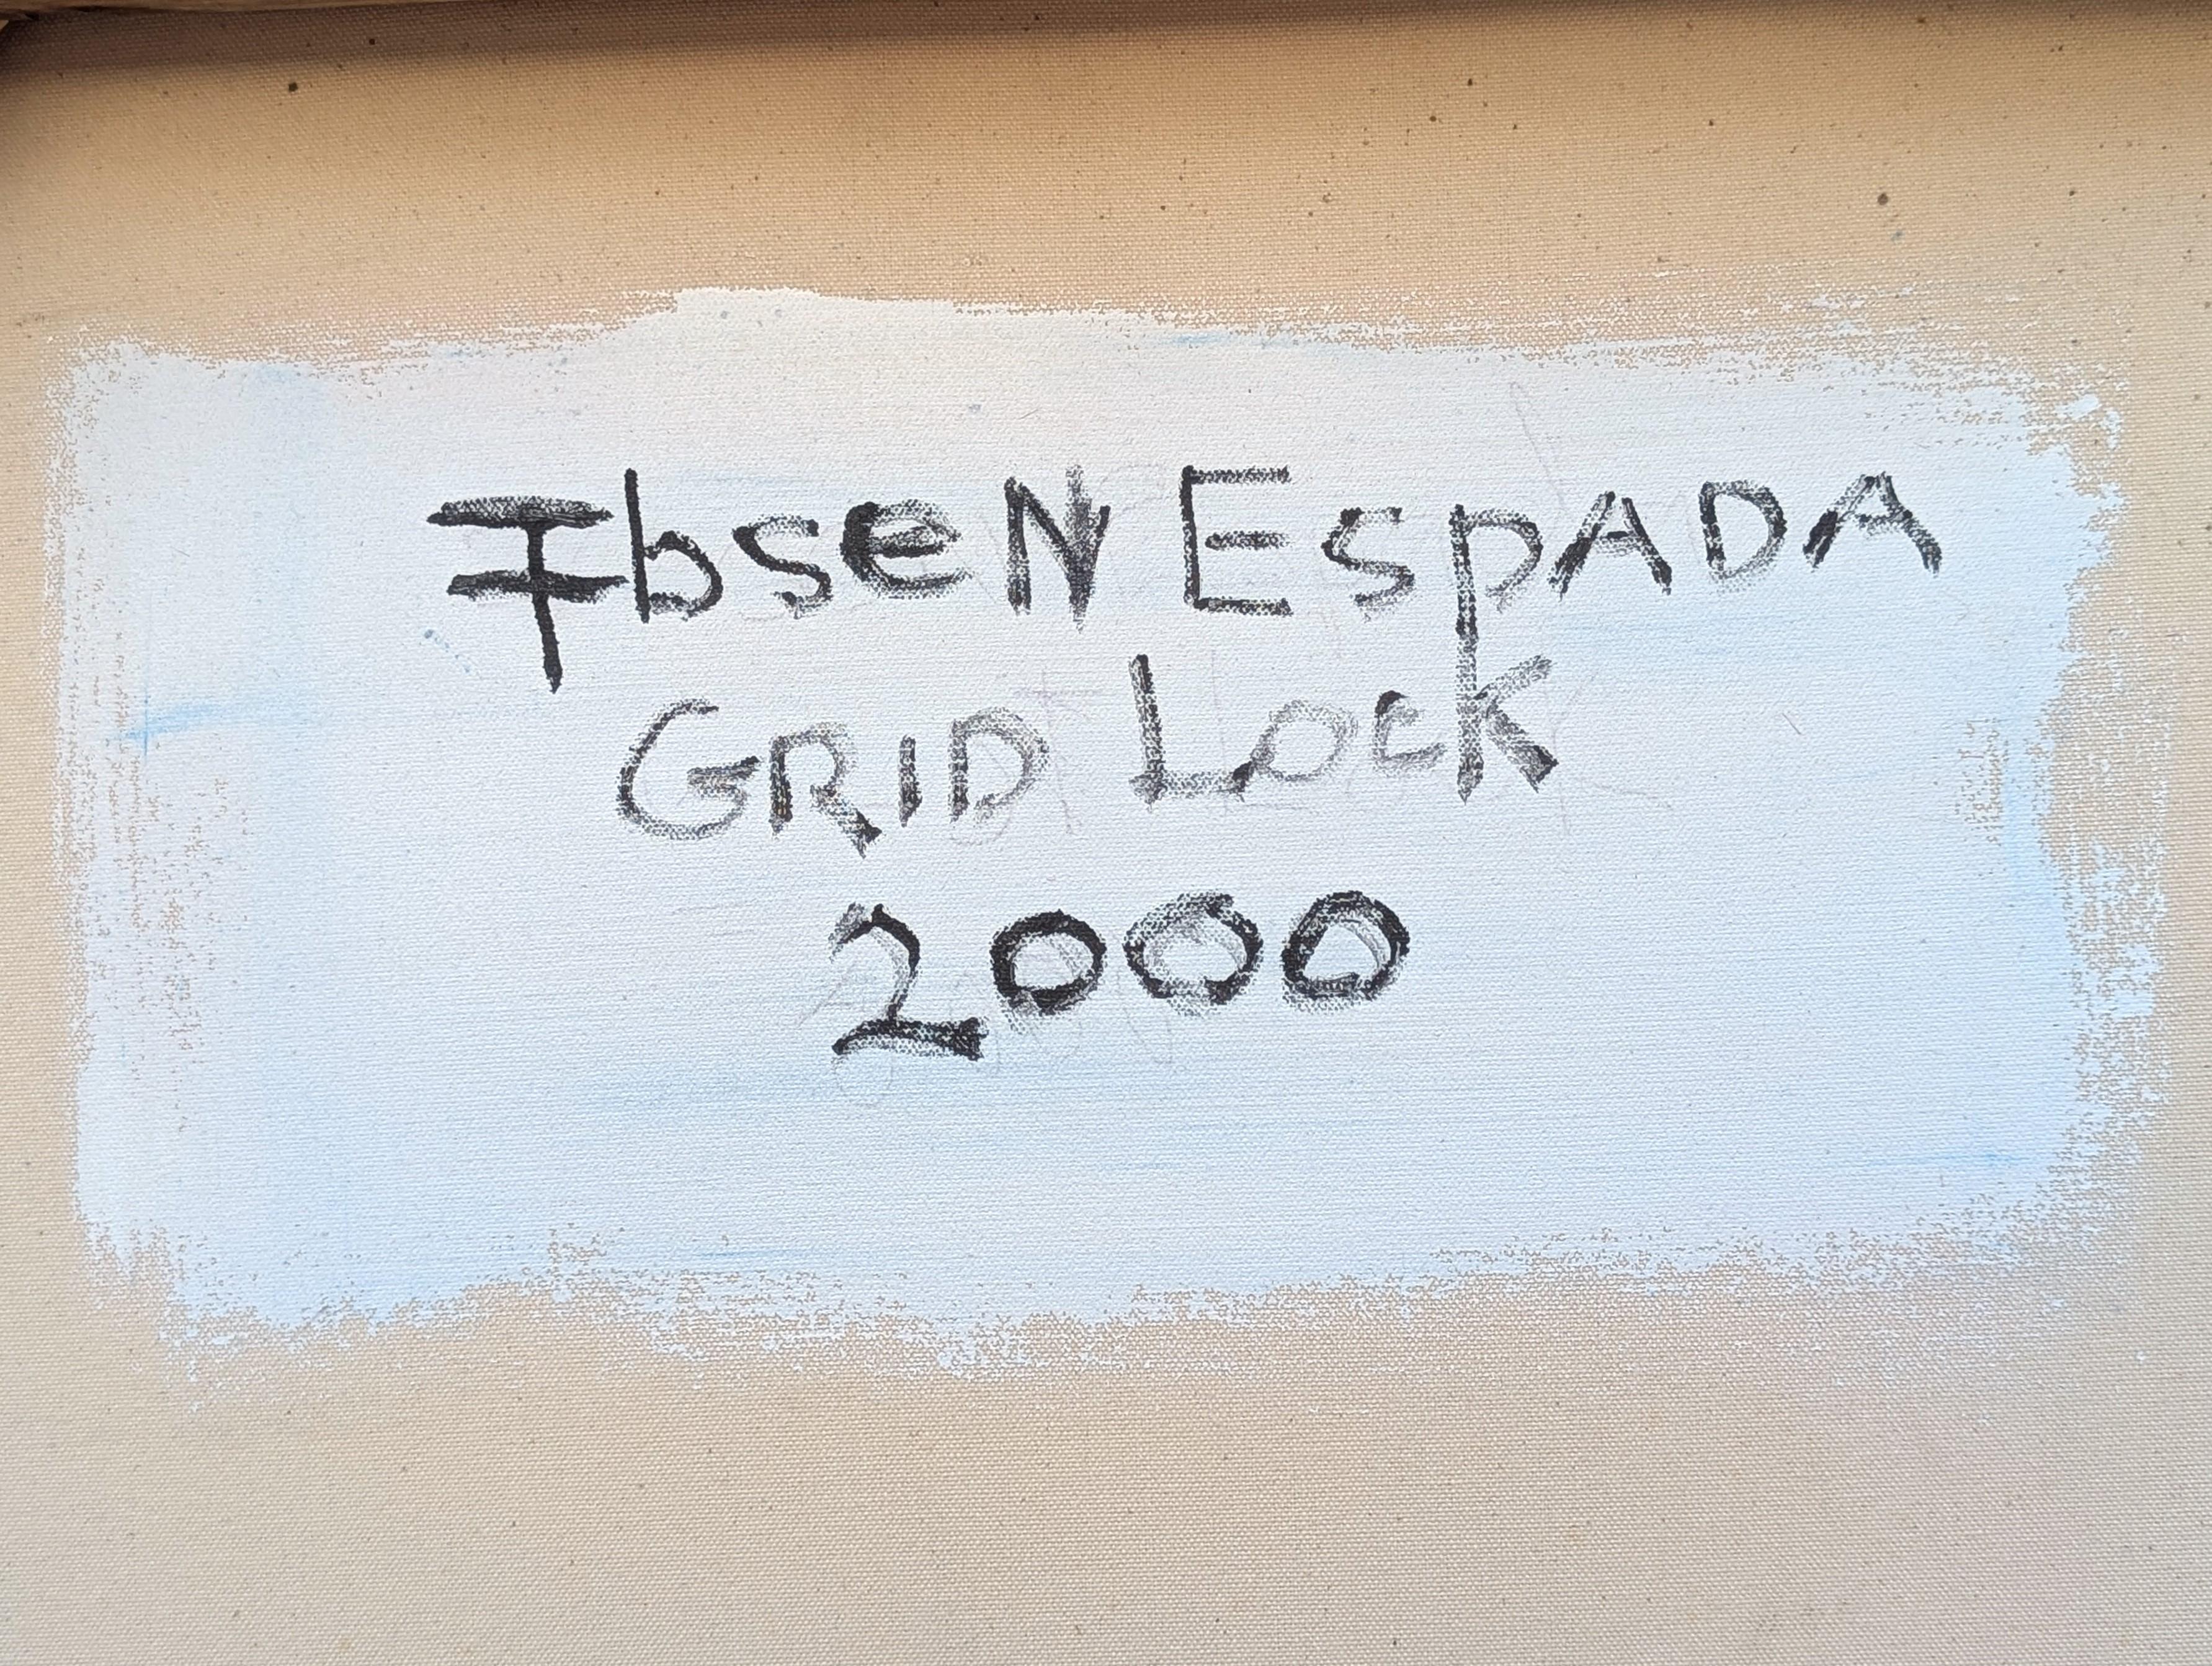 IbseN EspADA
GRID Lock
2000